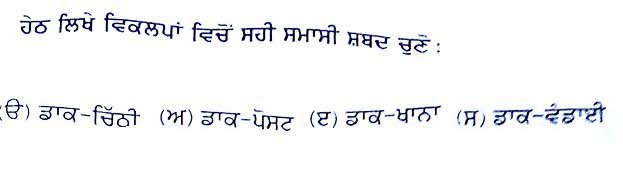 ਹੇਠ ਲਿਖੇ ਵਿਕਲਪਾਂ ਵਿਚੋਂ ਸਹੀ ਸਮਾਸੀ ਸ਼ਬਦ ਚੁਣੋ :
(ੳ) ਡਾਕ-ਚਿੱਠੀ (ਅ) ਡਾਕ-ਪੋਸਟ (ੲ) ਡਾਕ-ਖਾਨਾ (ਸ) ਡਾਕ-ਵੰਡਾਈ